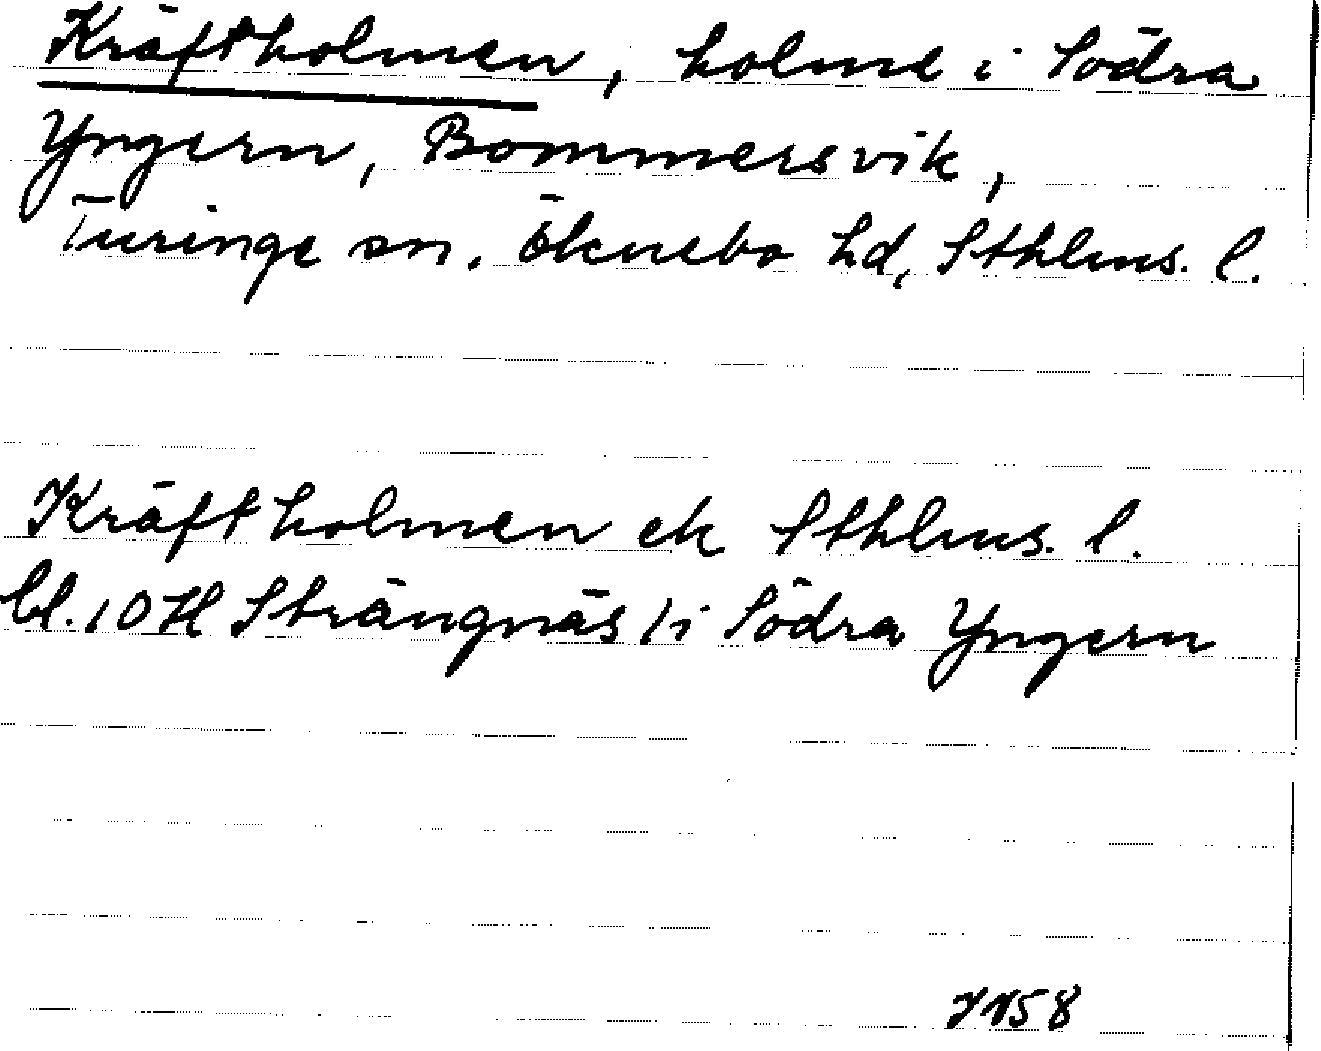 Kräftholmen, holme i Södra
Yngern, Bommersvik,
Turinge sn. Öknebo hd, Sthlms. l.
Kräftholmen ek Sthlms. l.
bl. 10 H Strängnäs /i Södra Yngern